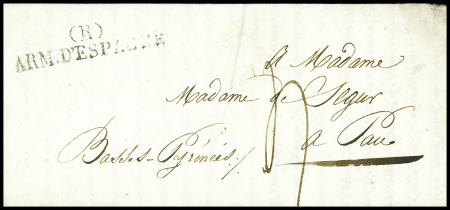 (R)
ARM. D'ESPAGNE
A Madame
Madame de Segur
a Pau
Basses-Pyrénées./